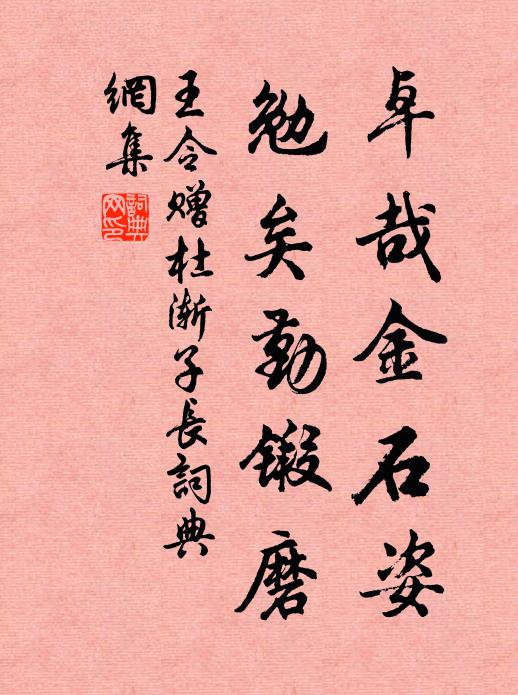 卓哉金石姿
勉矣勤锻磨
王令赠杜渐子長詞典
網集
詞典網印